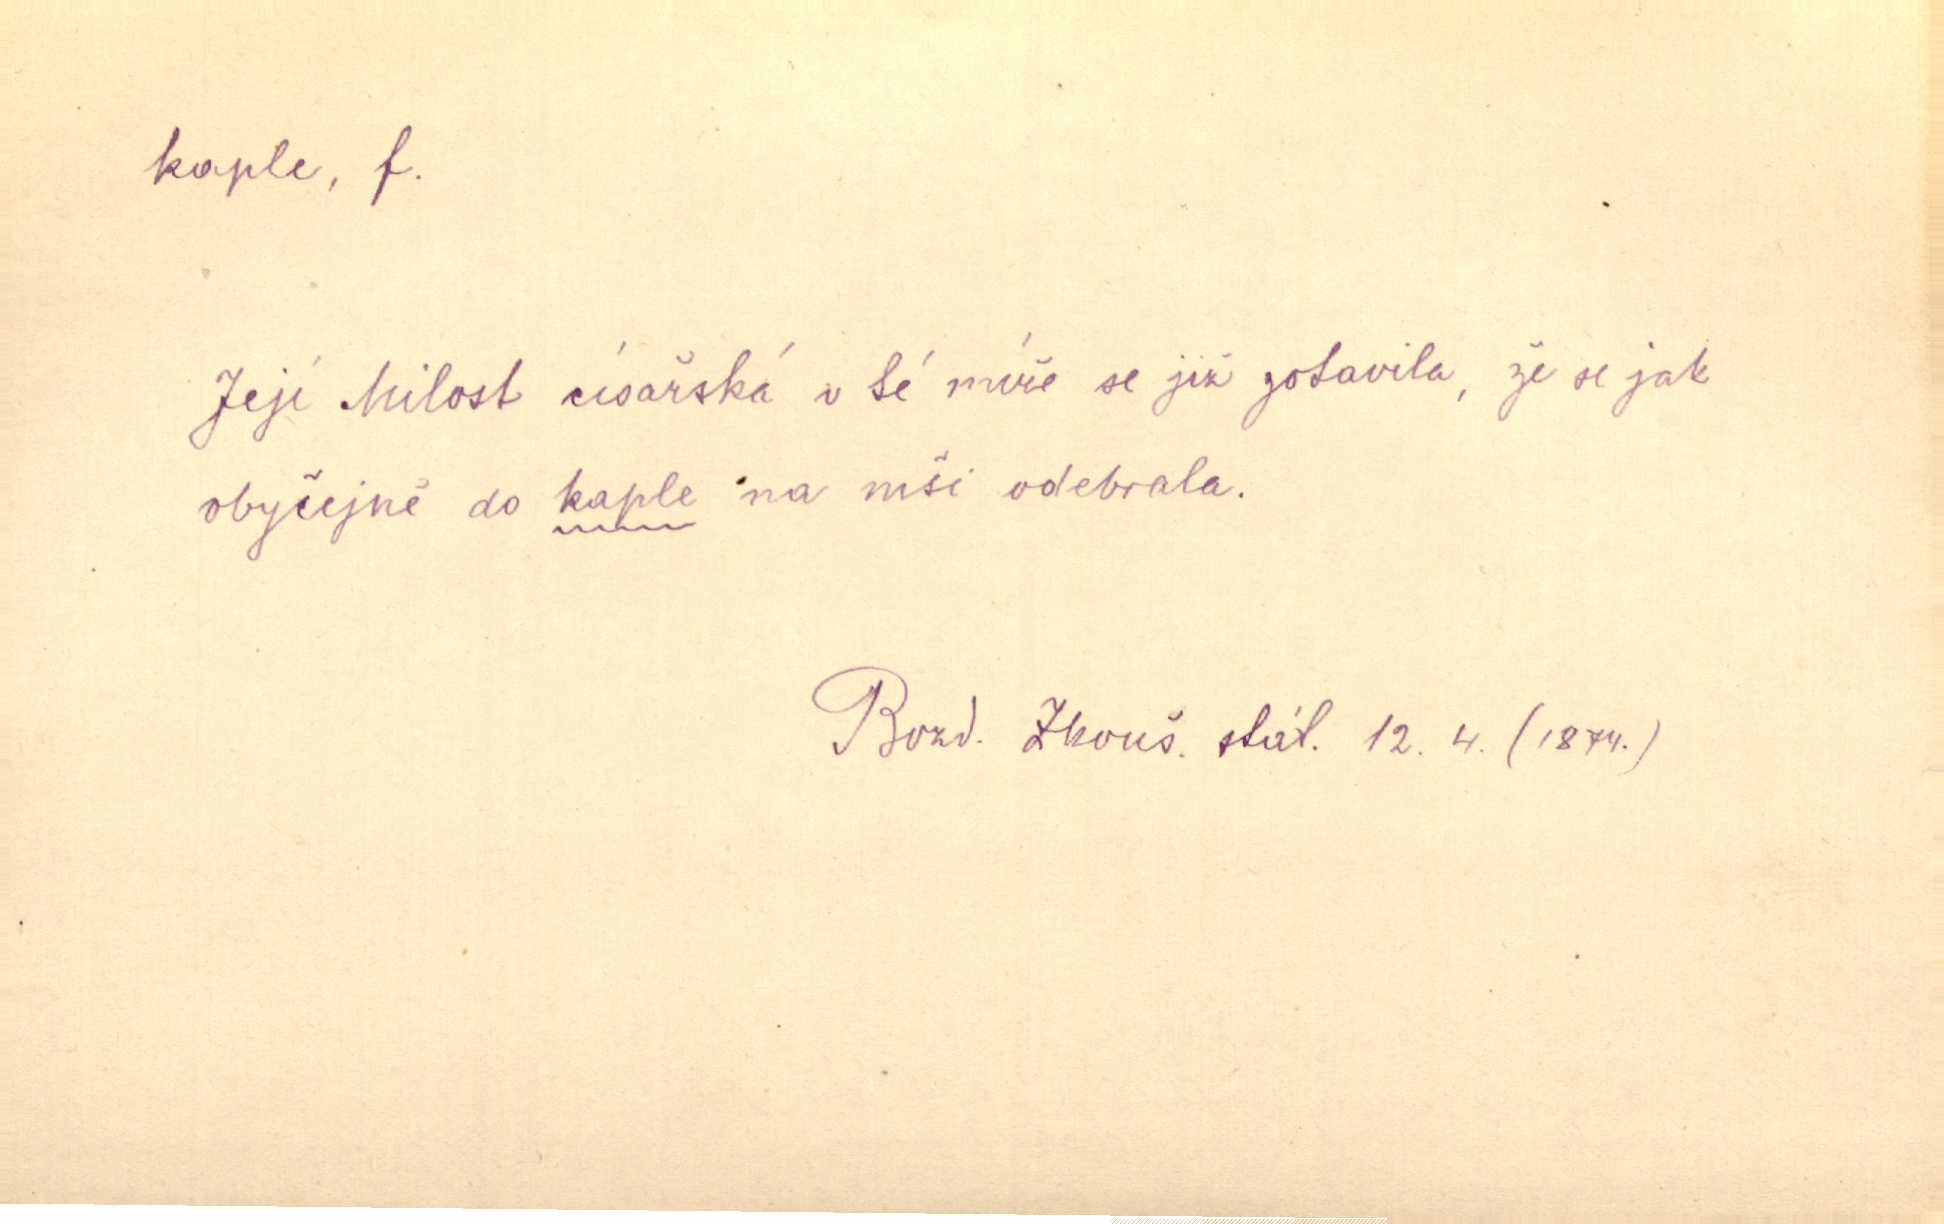 kaple, f.
Její Milost císařská v té míře se již zotavila, že se jak
obyčejně do kaple na mši odebrala.
Bozd. Zkouš. stát. 12. 4. (1874.)